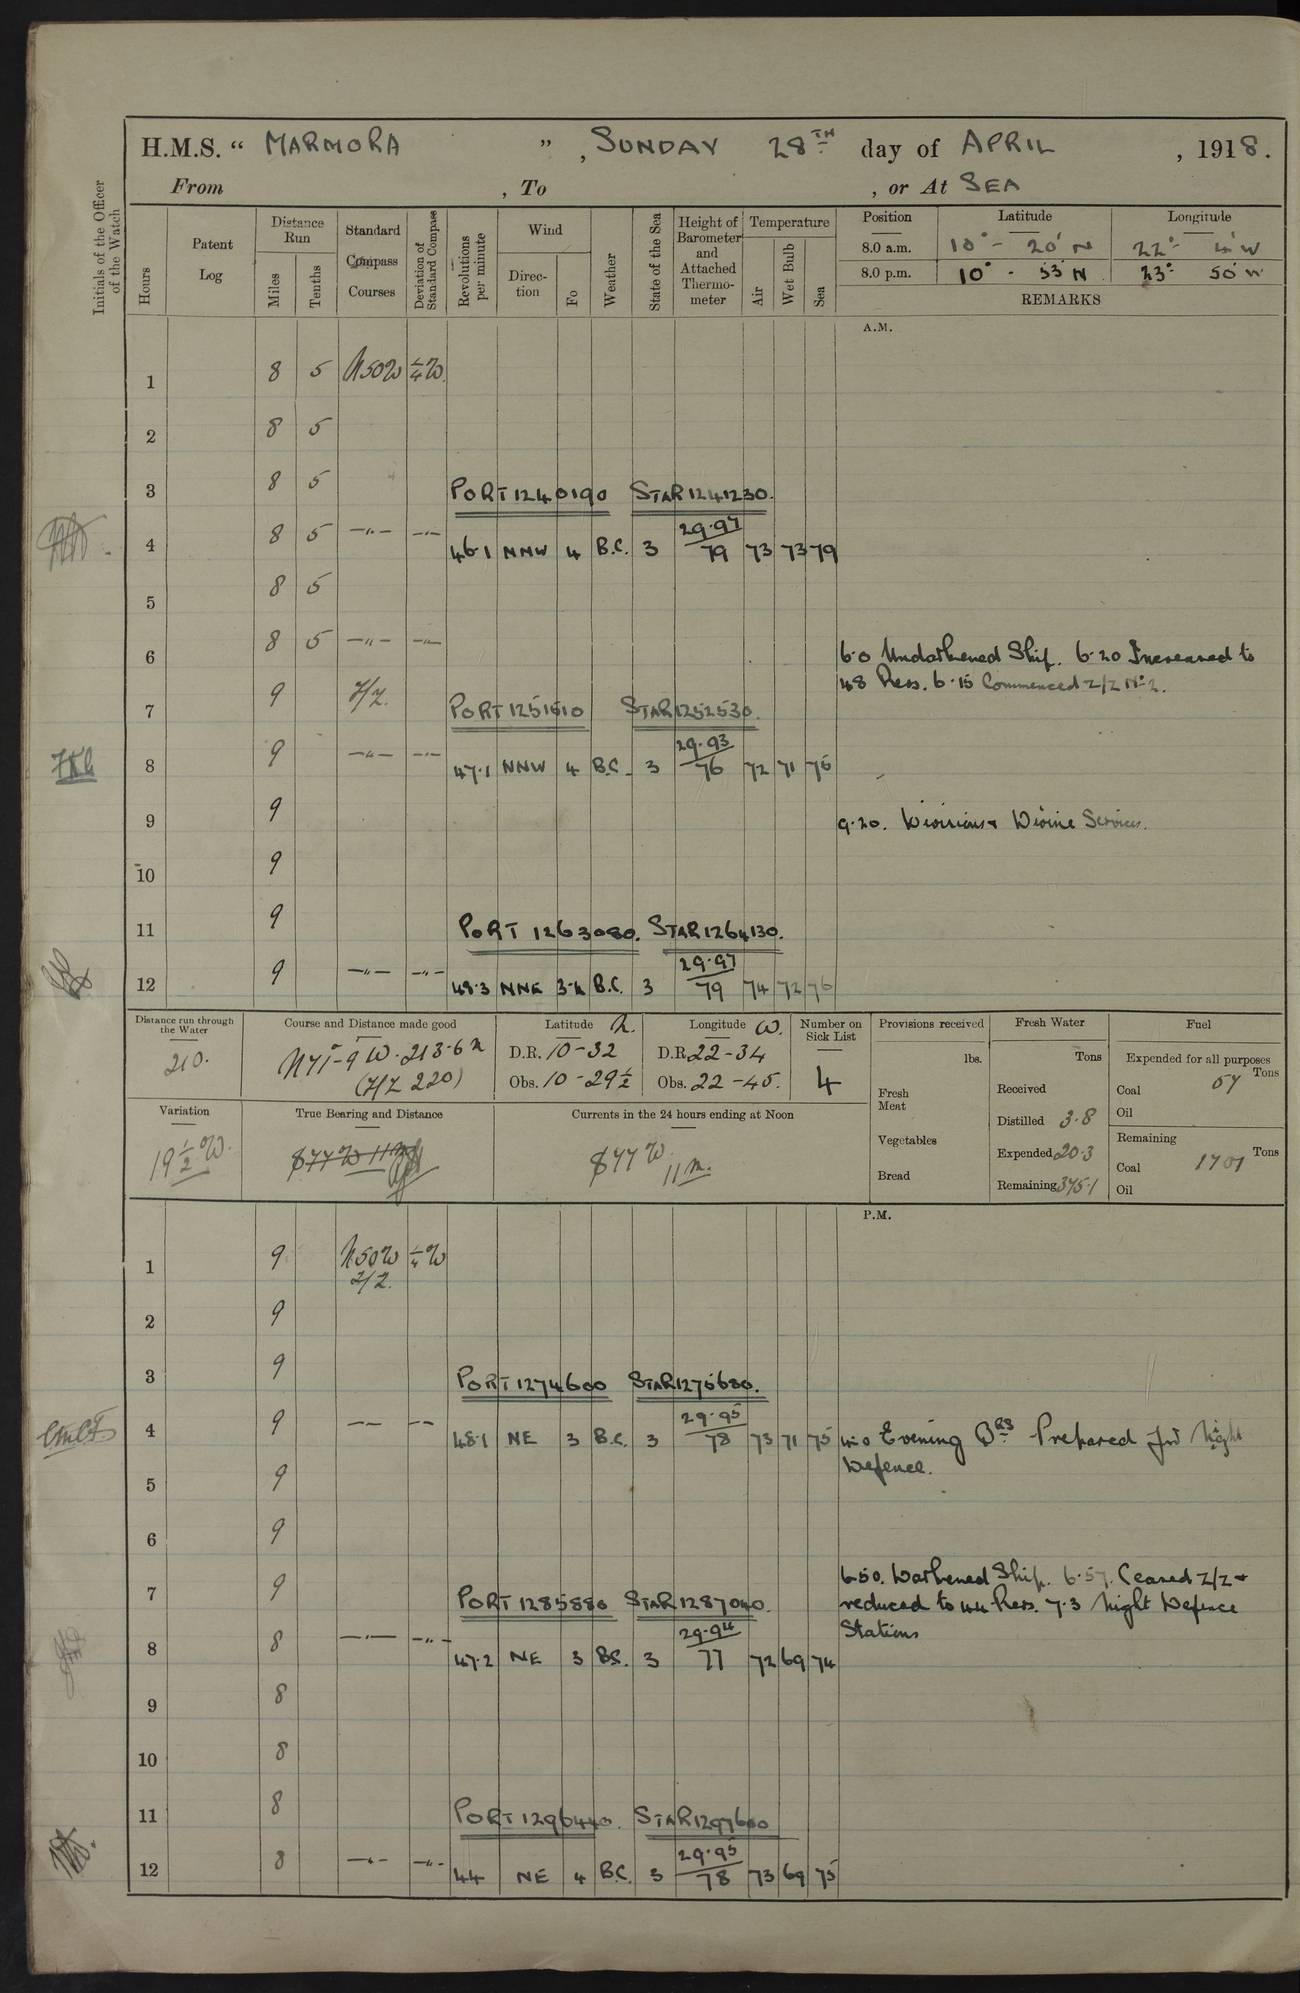 H.M.S. “ MARMORA ” , SUNDAY 28TH day of APRIL , 1918.
From , To , or At SEA
Initials of the Officer of the Watch
Hours
Patent Log
Distance Run
Miles
Tenths
Standard Compass Courses
Deviation of Standard Compass
Revolutions per minute
Wind
Direction
Fo
Weather
State of the Sea
Height of Barometer and Attached Thermometer
Temperature
Air
Wet Bulb
Sea
Position Latitude Longitude
8.0 a.m. 10° - 20' N 22°
8.0 p.m. 10° - 33' N 23° 50' W
REMARKS
A.M.
1 8 5 N50W ¼W.
2 8 5
3 8 5 PORT 1240190 STAR 1241230.
4 8 5 —"— —"— 46.1 NNW 4 B.C. 3 29.97/79 73 73 79
5 8 5
6 8 5 —"— —"— 6.0 Undarkened Ship. 6.20 Increased to
48 Revs. 6.15 Commenced Z/Z No 2.
7 9 Z/Z. PORT 1251610 STAR 1252530.
8 9 —"— —"— 47.1 NNW 4 B.C. 3 29.93/76 72 71 76
9 9 9.20. Divisions & Divine Services.
10 9
11 9 PORT 1263080. STAR 1264130.
12 9 —"— —"— 48.3 NNE 3-4 B.C. 3 29.97/79 74 72 76
Distance run through the Water
210.
Course and Distance made good
N71°-9 W. 213.6 m
(Z/Z 220)
Latitude N.
D.R. 10-32
Obs. 10-29½
Longitude W.
D.R. 22-34
Obs. 22-45.
Number on Sick List
4
Provisions received
lbs.
Fresh Meat
Vegetables
Bread
Fresh Water
Tons
Received
Distilled 3.8
Expended 20.3
Remaining 375.1
Fuel
Expended for all purposes
Tons
Coal 57
Oil
Remaining
Tons
Coal 1701
Oil
Variation
19½ W.
True Bearing and Distance
S77W 11m
Currents in the 24 hours ending at Noon
S77W.
11m.
P.M.
1 9 N50W ¼W
Z/Z.
2 9
3 9 PORT 1274600 STAR 1275680.
4 9 —"— —"— 48.1 NE 3 B.C. 3 29.95/78 73 71 75 4.0 Evening QRS Prepared for Night
Defence.
5 9
6 9
7 9 PORT 1285880 STAR 1287040. 6.50. Darkened Ship. 6.57. Ceased Z/Z &
reduced to 44 Revs. 7.3 Night Defence
Stations
8 8 —"— —"— 47.2 NE 3 B.C. 3 29.94/77 72 69 74
9 8
10 8
11 8 PORT 1296440. STAR 1297600
12 8 —"— —"— 44 NE 4 B.C. 3 29.95/78 73 69 75